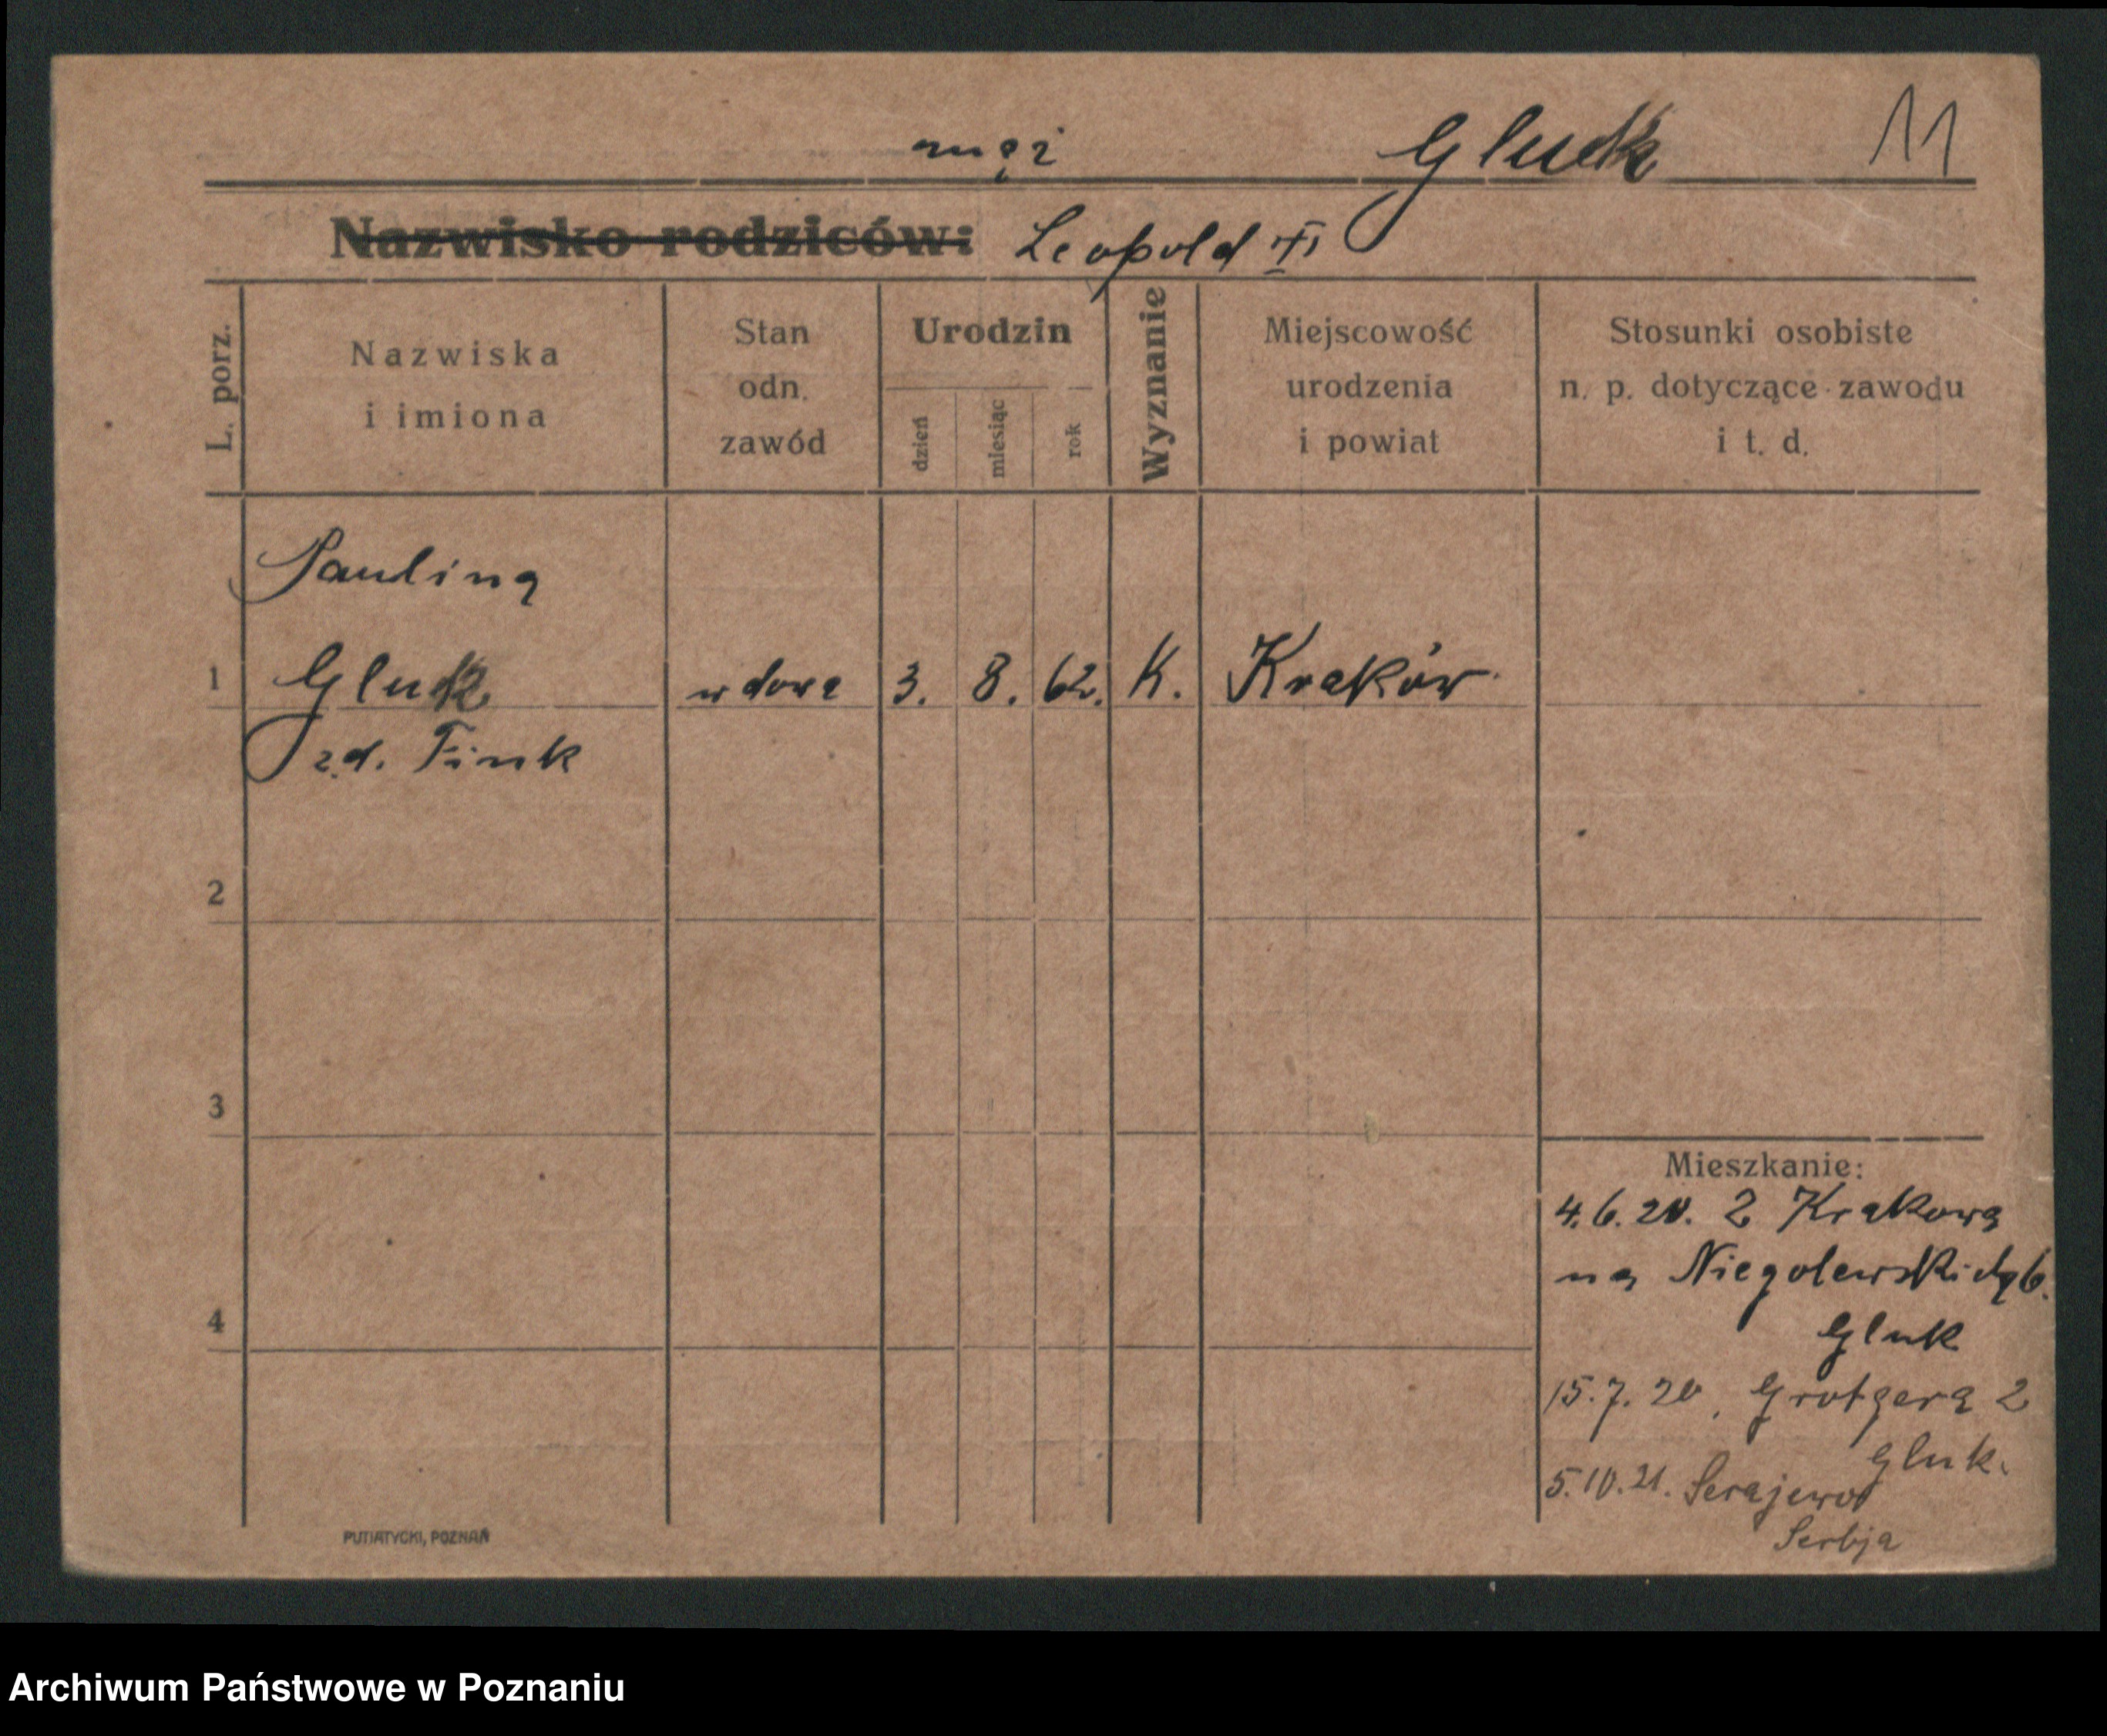 mąż Gluck 11
Nazwisko rodziców: Leopold
L. porz.
Nazwiska
i imiona
Stan
odn.
zawód
Urodzin
dzień
miesiąc
rok
Wyznanie
Miejscowość
urodzenia
i powiat
Stosunki osobiste
n. p. dotyczące zawodu
i t. d.
Paulina
1 Gluck wdowa 3. 8. 62. K. Kraków
zd. Fink
2
3
4
Mieszkanie:
4.6.20. z Krakowa
na Niegolewskich 6.
Gluk
15.7.20, Grotgera 2
Gluk.
5.10.21. Serajewo
Serbja
PUTIATYCKI, POZNAŃ
Archiwum Państwowe w Poznaniu